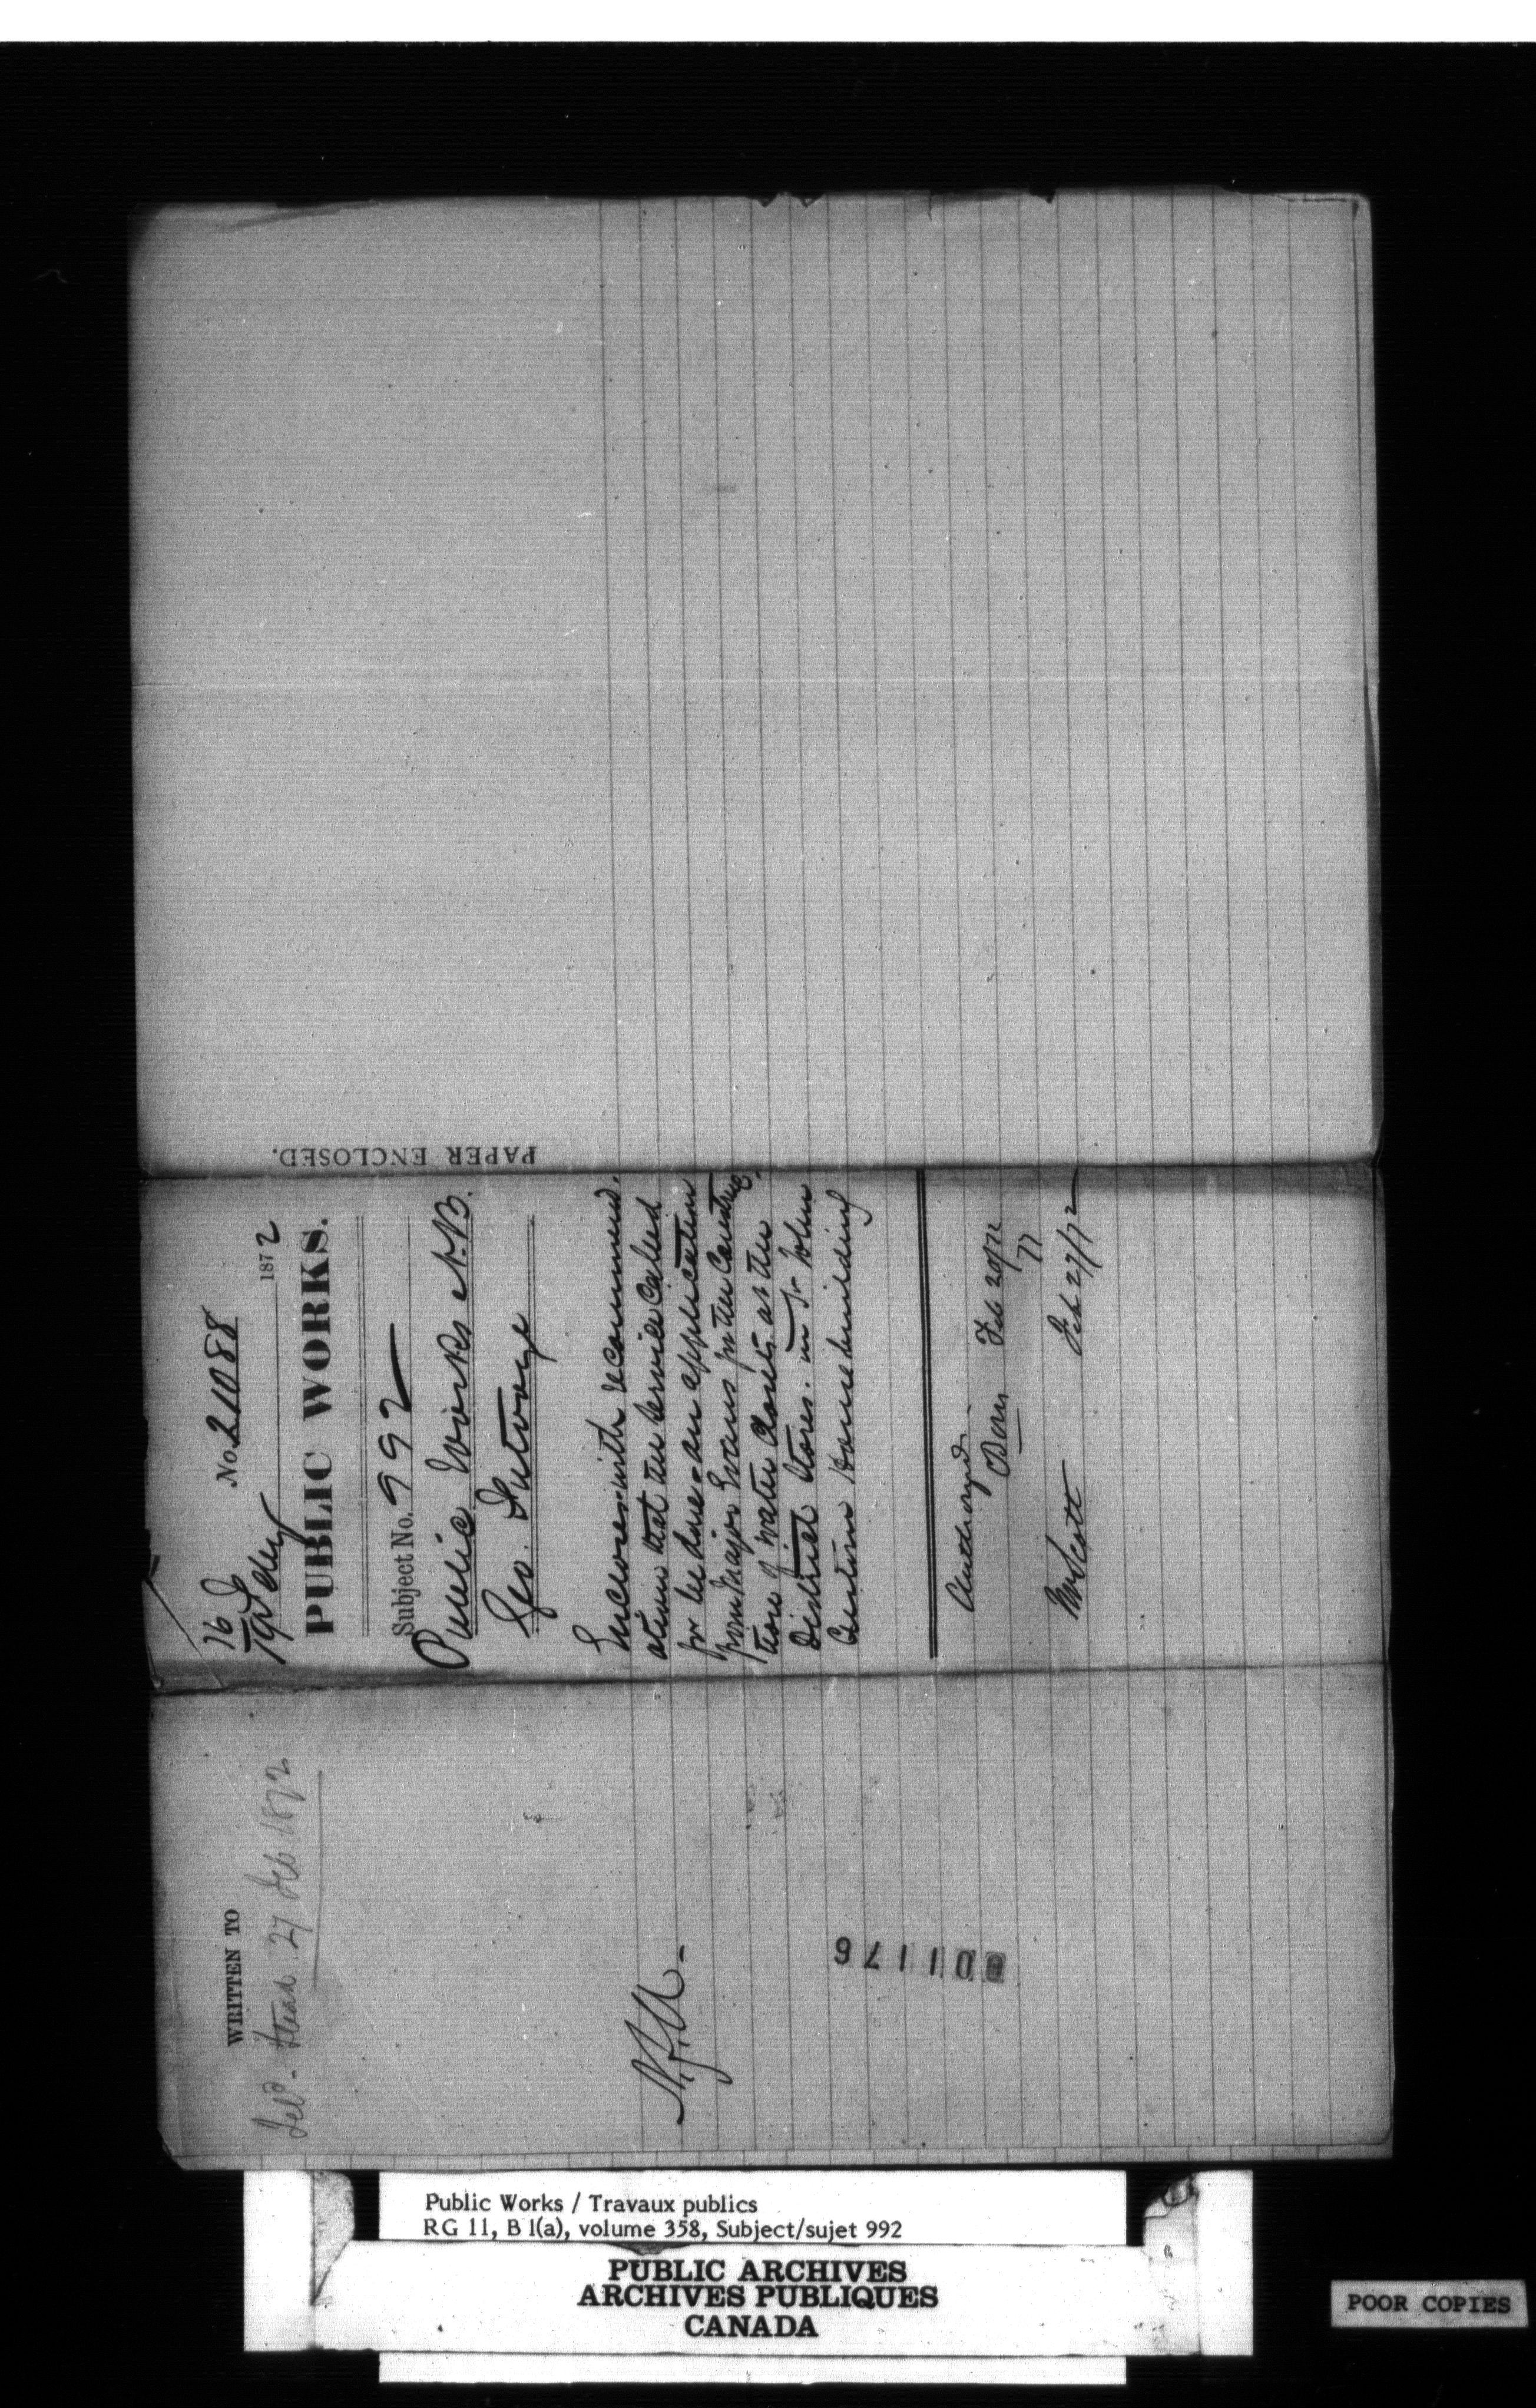 WRITTEN TO
Feb 1872
No. 21088
187 2
PUBLIC WORKS.
Subject No. 992
Public Works N.B.
Geo.
PAPER ENCLOSED.
Encloses with recommend.
ation that the service called
for be done - an application
from Major Evans for the construc
tion of water closets at the
District Stores. in St John
Custom House building
Authorized
Feb 20/72
Mr Scott Feb 27/72
001176
Public Works / Travaux publics
RG 11, B 1(a), volume 358, Subject/sujet 992
PUBLIC ARCHIVES
ARCHIVES PUBLIQUES
CANADA
POOR COPIES